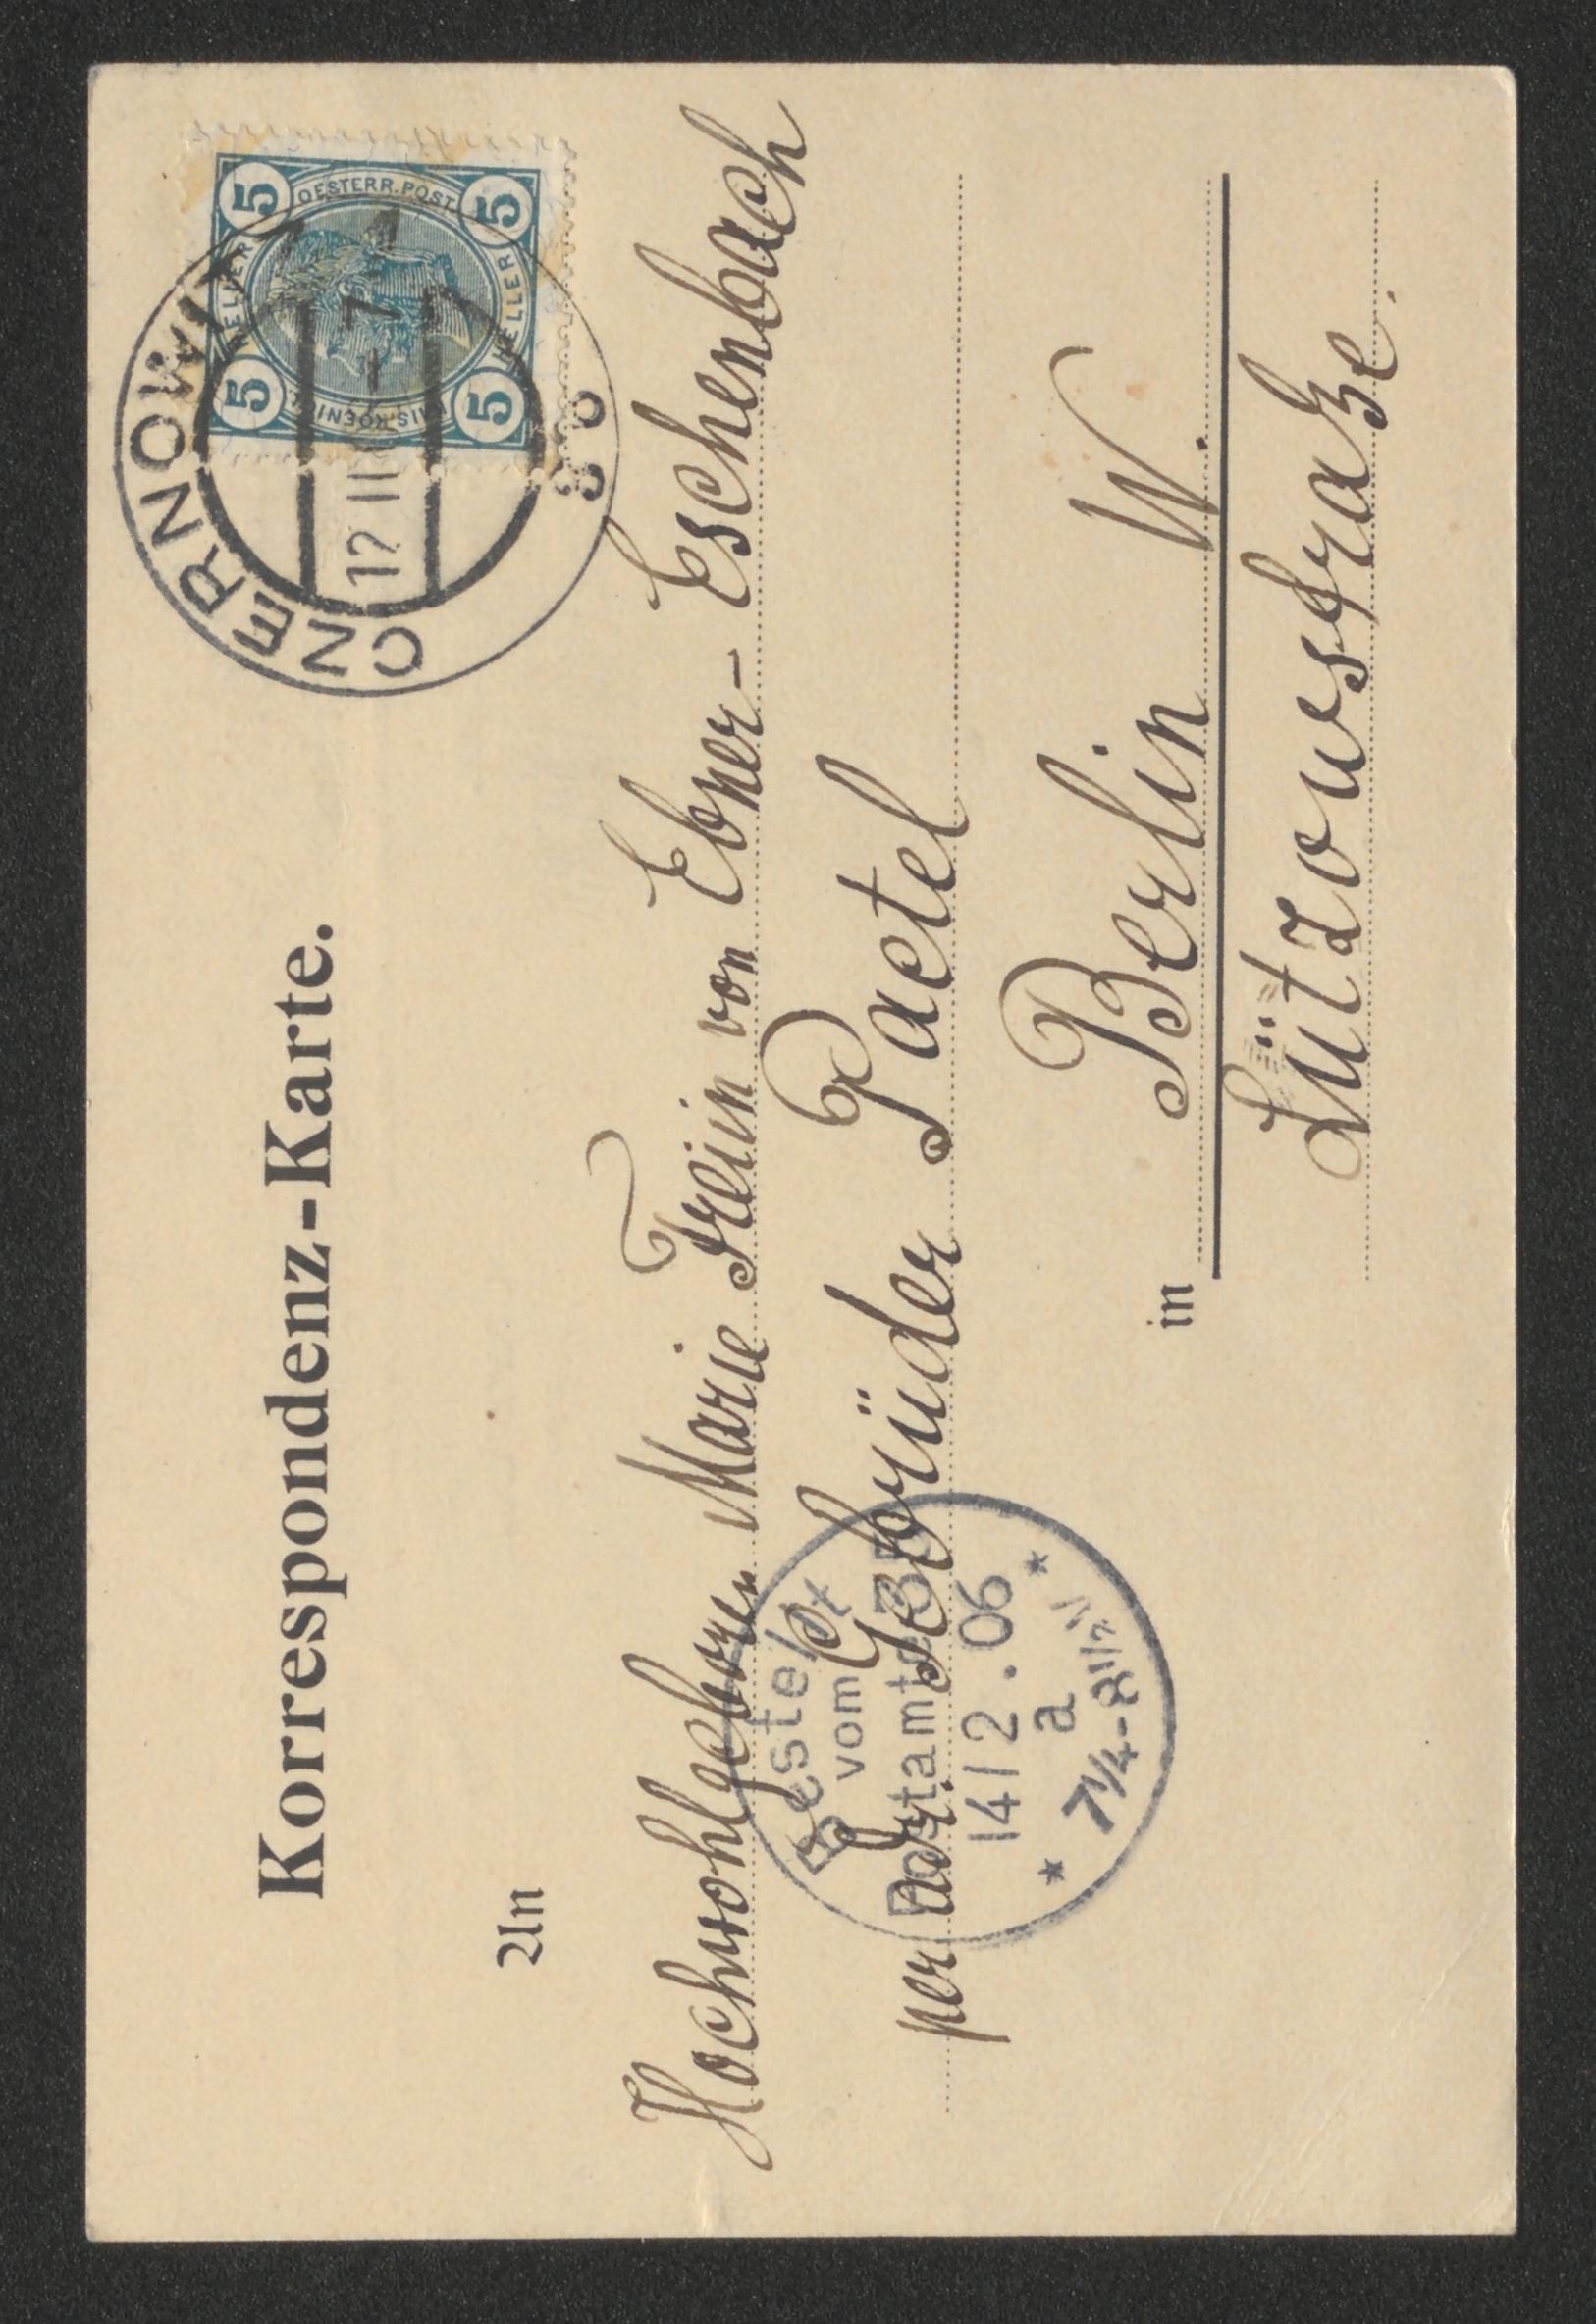 Korrespondenz-Karte.
5 5 5 5
OESTERR. POST.
HELLER HELLER
CZERNOWITZ
12 II
7
An
Hochwohlgeboren Marie Freiin von Ebner-Eschenbach
per adr. Gebrüder Paetel
in Berlin W.
Lützowstraße.
Bestellt
vom
Postamte
14/2.06
a
* 7¼-8½N *